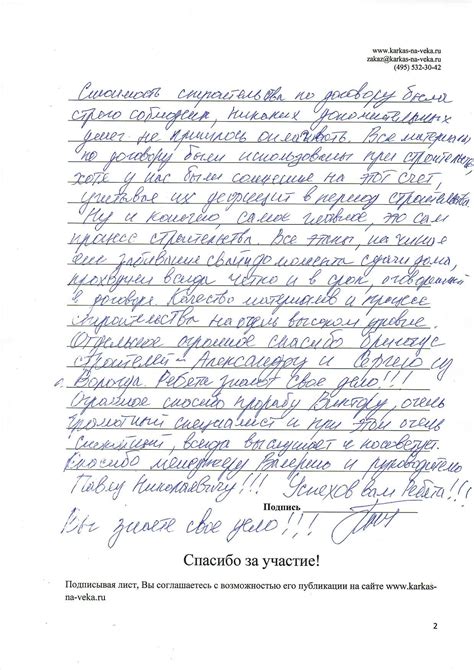 www.karkas-na-veka.ru
zakaz@karkas-na-veka.ru
(495) 532-30-42
Стоимость строительства по договору была
строго соблюдена, никаких дополнительных
денег не пришлось оплачивать. Все материалы
по договору были использованы при строительстве,
хотя у нас были сомнение на этот счет,
учитывая их дефицит в период строительства.
Ну и конечно, самое главное, это сам
процесс строительства. Все этапы, начиная
от забивания свай до момента сдачи дома,
проходили всегда четко и в срок, оговоренный
в договоре. Качество материалов и процесс
строительства на очень высоком уровне.
Отдельное огромное спасибо бригаде
строителей - Александру и Сергею из
г. Вологда. Ребята знают свое дело!!!
Огромное спасибо прорабу Виктору, очень
грамотный специалист и при этом очень
всегда выслушает и посоветует.
Спасибо менеджеру Валерию и руководителю
Павлу Николаевичу!!! Успехов вам ребята!!!
Подпись
Вы знаете свое дело!!!
Спасибо за участие!
Подписывая лист, Вы соглашаетесь с возможностью его публикации на сайте www.karkas-
na-veka.ru
2